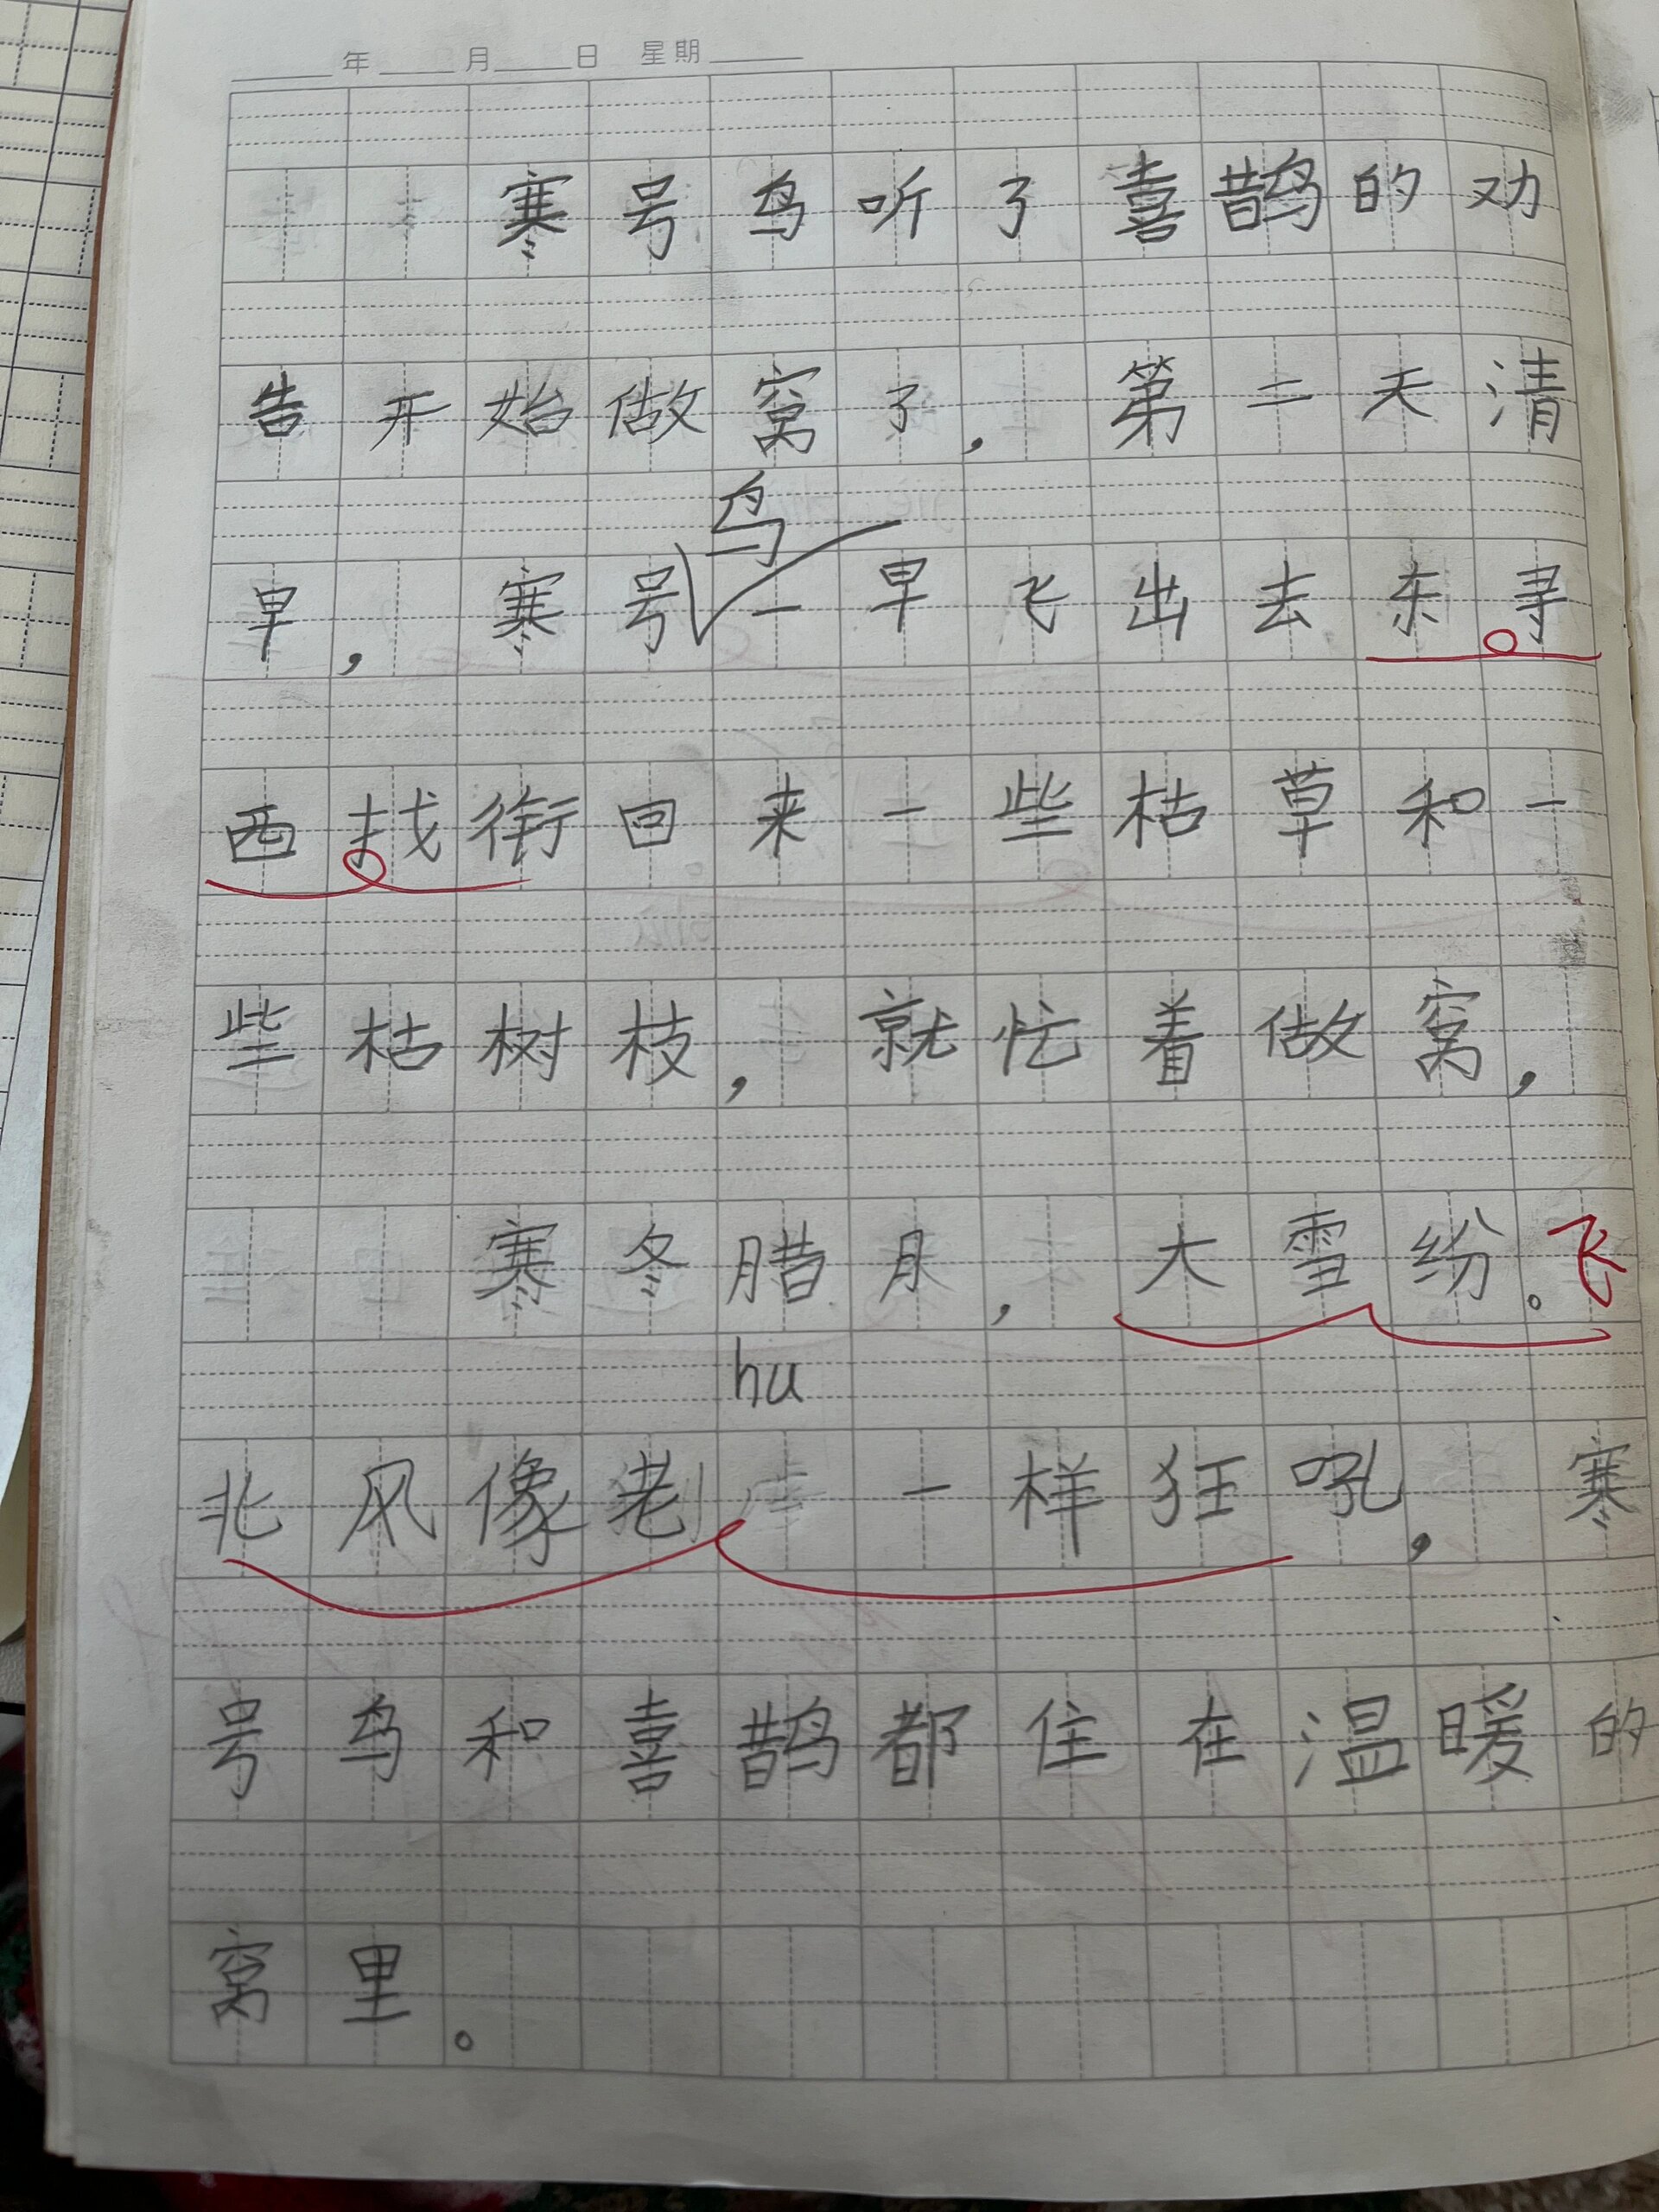 年 月 日 星期
寒号鸟听了喜鹊的劝
告开始做窝了，第二天清
鸟
早，寒号一早飞出去东寻
西找衔回来一些枯草和一
些枯树枝，就忙着做窝，
寒冬腊月，大雪纷。飞
hu
北风像老一样狂吼，寒
号鸟和喜鹊都住在温暖的
窝里。